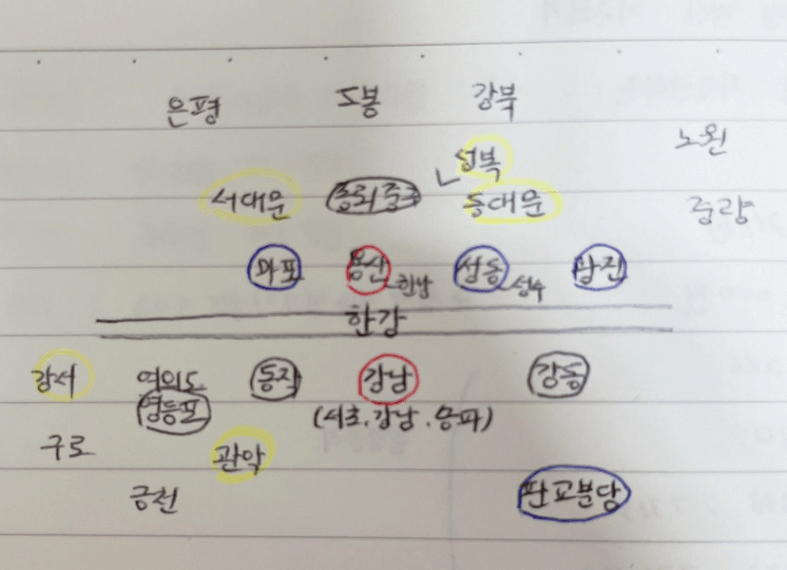 은평 도봉 강북
노원
성북
서대문 종로중구 동대문 중랑
마포 용산 한남 성동 성수 광진
한강
강서 여의도 동작 강남 강동
영등포 (서초.강남.송파)
구로 관악
금천 판교분당